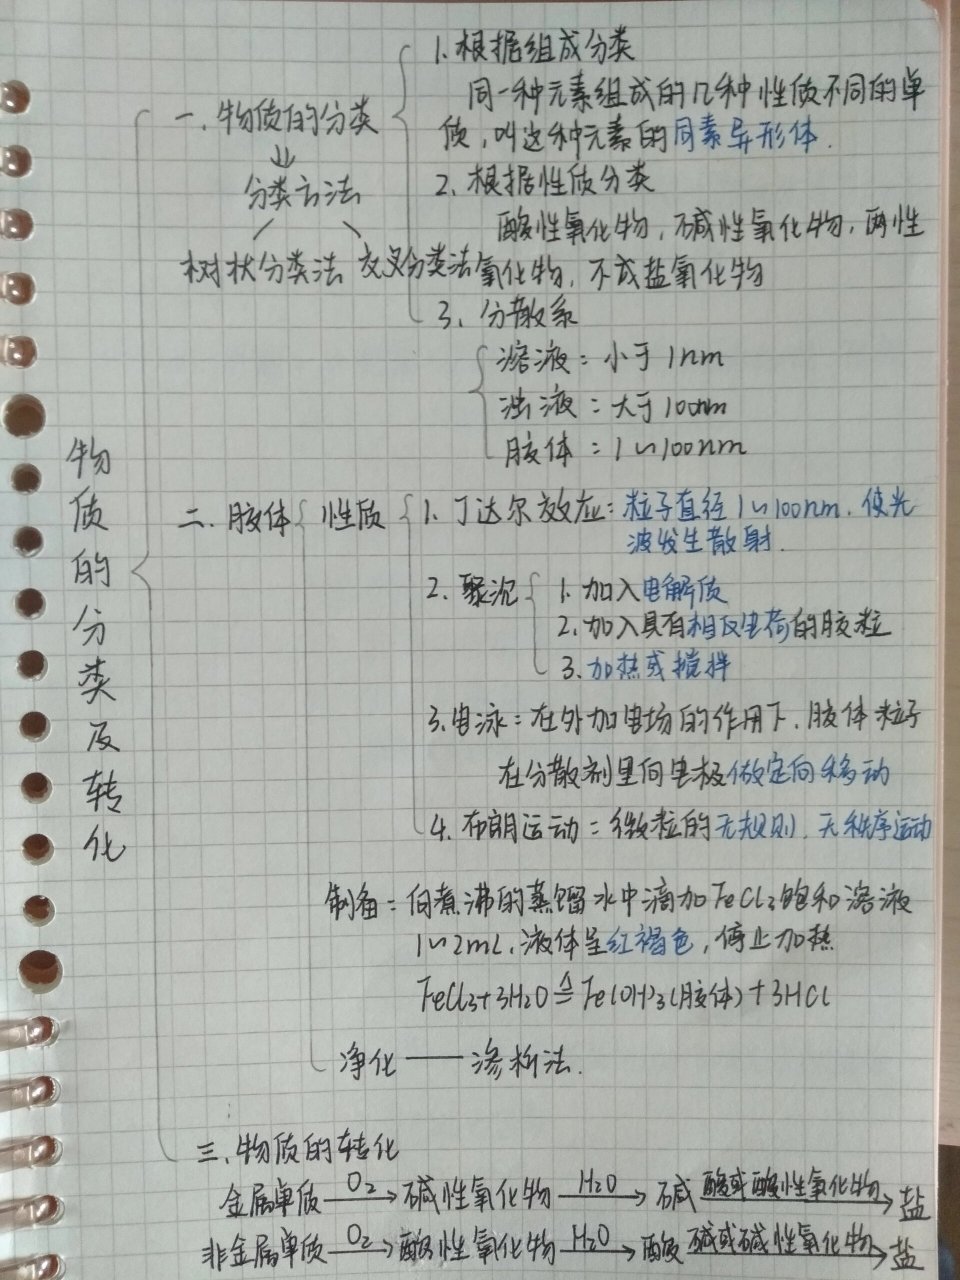 物质的分类及转化
一、物质的分类
分类方法
树状分类法 交叉分类法
1、根据组成分类
同一种元素组成的几种性质不同的单
质，叫这种元素的同素异形体.
2、根据性质分类
酸性氧化物，碱性氧化物，两性
氧化物，不成盐氧化物
3、分散系
溶液：小于1nm
浊液：大于100nm
胶体：1~100nm
二、胶体
性质
1、丁达尔效应：粒子直径1~100nm，使光
波发生散射.
2、聚沉
1、加入电解质
2、加入具有相反电荷的胶粒
3、加热或搅拌
3、电泳：在外加电场的作用下，胶体粒子
在分散剂里向电极做定向移动
4、布朗运动：微粒的无规则，无秩序运动
制备：向煮沸的蒸馏水中滴加FeCl3饱和溶液
1~2mL，液体呈红褐色，停止加热
FeCl3+3H2O ≜ Fe(OH)3(胶体)+3HCl
净化——渗析法.
三、物质的转化
金属单质 —O2→ 碱性氧化物 —H2O→ 碱 —酸或酸性氧化物→ 盐
非金属单质 —O2→ 酸性氧化物 —H2O→ 酸 —碱或碱性氧化物→ 盐